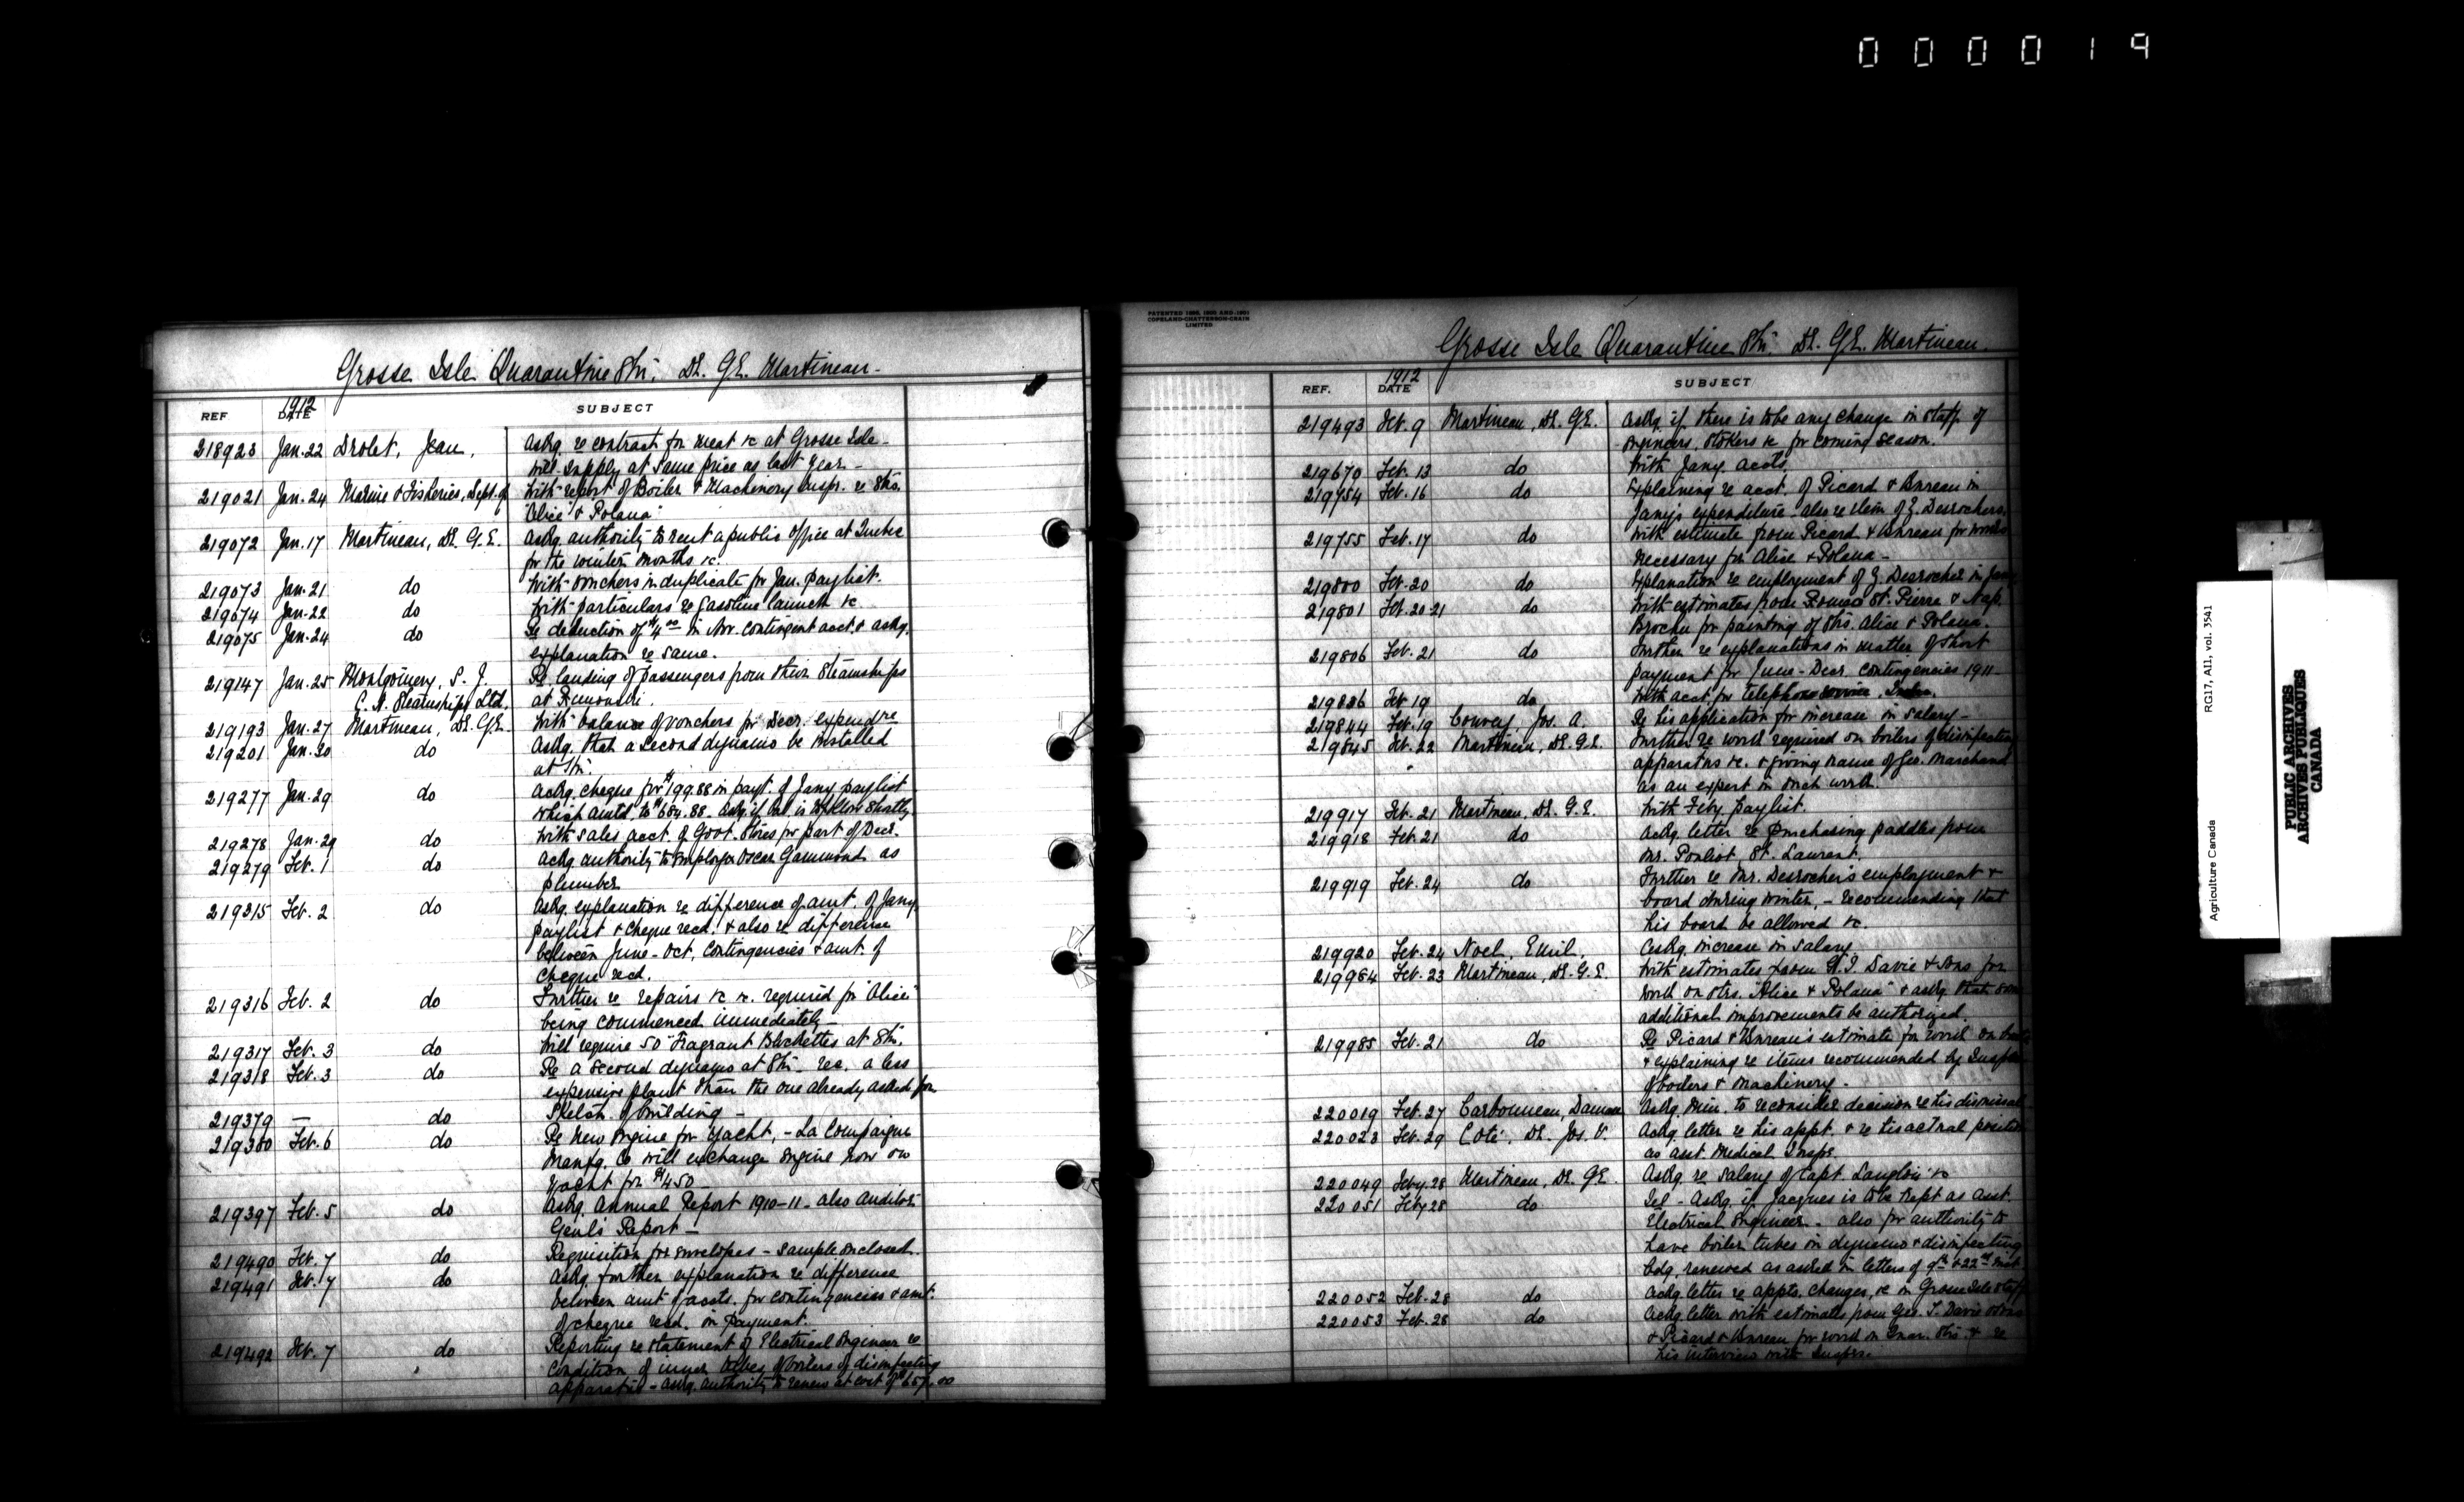 000019
Grosse Isle Quarantine Stn. Dr. G.E. Martineau.
REF 1912 DATE SUBJECT
218923 Jan. 22 Drolet, Jean, Askg. re contract for meat &c at Grosse Isle –
will supply at same price as last year –
219021 Jan. 24 Marine & Fisheries, Dept. of With report of Boiler & Machinery Inspr. re Strs.
"Alice" & "Polana"
219072 Jan. 17 Martineau, Dr. G.E. Askg. authority to rent a public office at Quebec
for the winter months &c.
219073 Jan. 21 do With vouchers in duplicate for Jan. paylist.
219074 Jan. 22 do With particulars re gasoline launch &c
219075 Jan. 24 do Re deduction of $4.00 in Nov. contingent acct. & askg.
explanation re same.
219147 Jan. 25 Montgomery, S. J. Re landing of passengers from their steamships
C. N. Steamships Ltd. at Rimouski.
219193 Jan. 27 Martineau, Dr. G.E. With balance of vouchers for Decr. expendre
219201 Jan. 30 do Askg. that a second dynamo be installed
at Stn.
219277 Jan. 29 do Ackg. cheque for $199.88 in payt. of Jany paylist
which amtd. to $684.88. Askg. if bal. is to follow shortly.
219278 Jan. 29 do With sales acct. of Govt. Stores for part of Decr.
219279 Feb. 1 do Ackg authority to employ Oscar Gammond as
plumber
219315 Feb. 2 do Askg. explanation re difference of amt. of Jany
paylist & cheque recd. & also re difference
between June - Oct. contingencies & amt. of
cheque recd.
219316 Feb. 2 do Further re repairs &c &c. required for "Alice"
being commenced immediately –
219317 Feb. 3 do Will require 50 Fragrant Blockettes at Stn.
219318 Feb. 3 do Re a second dynamo at Stn – rec. a less
expensive plant than the one already asked for
219379 — do Sketch of building –
219380 Feb. 6 do Re new engine for yacht, – La Compaigne
Manfg. Co will exchange engine now on
yacht for $450 –
219397 Feb. 5 do Askg. Annual Report 1910–11 – also Auditor
Genl's Report –
219490 Feb. 7 do Requisition for envelopes – sample enclosed.
219491 Feb. 7 do Askg. further explanation re difference
between amt of accts. for contingencies & amt.
of cheque recd. in payment.
219492 Feb. 7 do Reporting re statement of Electrical Engineer re
condition of inner tubes of boilers of disinfecting
apparatus – askg. authority to renew at cost of $657.00
PATENTED 1896, 1900 AND 1901
COPELAND-CHATTERSON-CRAIN
LIMITED
Grosse Isle Quarantine Stn. Dr. G.E. Martineau.
REF. 1912 DATE SUBJECT
219493 Feb. 9 Martineau, Dr. G.E. Askg. if there is to be any change in staff of
engineers, stokers &c for coming season.
219670 Feb. 13 do With Jany. accts.
219754 Feb. 16 do Explaining re acct. of Picard & Bureau in
Jany's expenditure – also re item of Z. Desrochers.
219755 Feb. 17 do With estimate from Picard & Bureau for works
necessary for Alice & Polana –
219800 Feb. 20 do Explanation re employment of Z. Desrocher in Jany
219801 Feb. 20-21 do With estimates from Romeo St. Pierre & Nap.
Brochu for painting of Strs. Alice & Polana.
219806 Feb. 21 do Further re explanations in matter of short
payment for June - Decr. contingencies 1911 –
219836 Feb 19 do With acct. for telephone service
219844 Feb. 19 Convey Jos. A. Re his application for increase in salary –
219845 Feb. 22 Martineau, Dr. G.E. Further re work required on boilers of disinfecting
apparatus &c. & giving name of Geo. Marchand
as an expert in such work.
219917 Feb. 21 Martineau, Dr. G.E. With Feby. paylist.
219918 Feb. 21 do Ackg. letter re purchasing paddles from
Mr. Pouliot, St. Laurent.
219919 Feb. 24 do Further re Mr. Desrocher's employment &
board during winter, – recommending that
his board be allowed &c.
219920 Feb. 24 Noel, Emil. Askg. increase in salary
219984 Feb. 23 Martineau, Dr. G.E. With estimates from G. T. Davie & Sons for
work on strs. "Alice & Polana" & askg. that some
additional improvements be authorized.
219985 Feb. 21 do Re Picard & Bureau's estimate for work on boats
& explaining re items recommended by Inspr.
of boilers & machinery –
220019 Feb. 27 Carbonneau, Damase Askg. Min. to reconsider decision re his dismissal
220023 Feb. 29 Coté, Dr. Jos. V. Ackg. letter re his appt. & re his actual position
as asst. Medical Inspr.
220049 Feby. 28 Martineau, Dr. G.E. Askg. re salary of Capt. Langlois &c
220051 Feby 28 do Tel – Askg. if Jacques is to be kept as Asst.
Electrical Engineer – also for authority to
have boiler tubes in dynamo & disinfecting
bdg. renewed as asked in letters of 9th & 22nd inst
220052 Feb. 28 do Ackg letter re appts. changes, &c in Grosse Isle staff
220053 Feb. 28 do Ackg letter with estimates from Geo. T. Davie & Sons
& Picard & Bureau for work on Quar. Strs. & re
his interview with Inspr.
Agriculture Canada RG17, AII, vol. 3541
PUBLIC ARCHIVES
ARCHIVES PUBLIQUES
CANADA